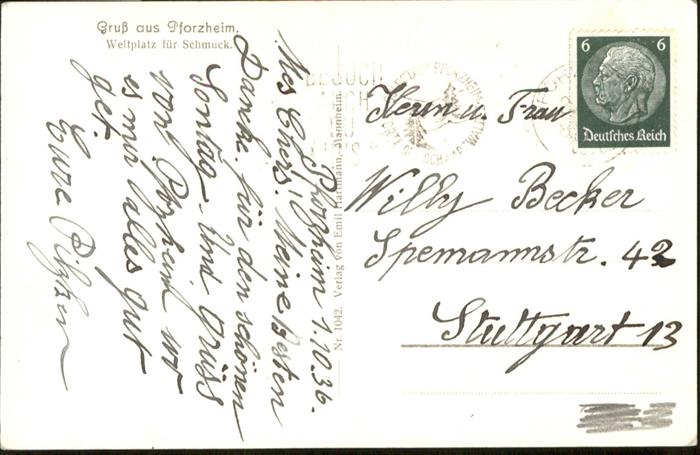 Gruß aus Pforzheim.
Weltplatz für Schmuck.
Pforzheim 1.10.36.
Meine Besten
Danke für den schönen
Sontag und Grüss
von Pforzheim wo
es mir alles gut
get.
Eure
Nr. 1042. Verlag von Emil Hartmann, Mannheim.
BESUCH
6 6
Deutsches Reich
Herrn u. Frau
Willy Becker
Spemannstr. 42
Stuttgart 13